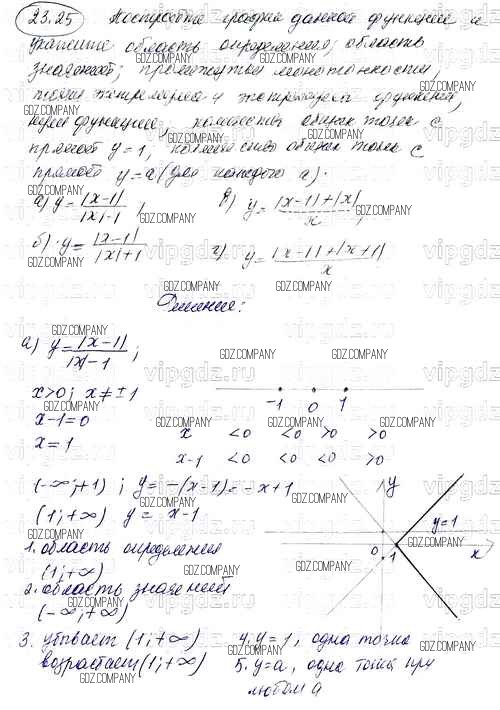 23.25 Постройте график данной функции и
укажите область определения; область
значений; промежутки монотонности,
точки экстремума и экстремумы функции,
нули функции, количество общих точек с
прямой y=1, количество общих точек с
прямой y=a (для каждого a).
а) y = |x-1| / |x|-1 , в) y = |x-1|+|x| / x ,
б) y = |x-1| / |x|+1 г) y = |x-1|+|x+1| / x
Решение:
а) y = |x-1| / |x|-1 ;
x>0; x≠±1
x-1=0
x=1
-1 0 1
x <0 <0 >0 >0
x-1 <0 <0 <0 >0
(-∞;+1) ; y = -(x-1) = -x+1
(1;+∞) y = x-1
y
y=1
0 1 x
1. область определения
(1;+∞)
2. область значений
(-∞;+∞)
3. убывает (1;+∞)
возрастает (1;+∞)
4. y=1, одна точка
5. y=a, одна точка при
любом a
GDZ.COMPANY
vipgdz.ru